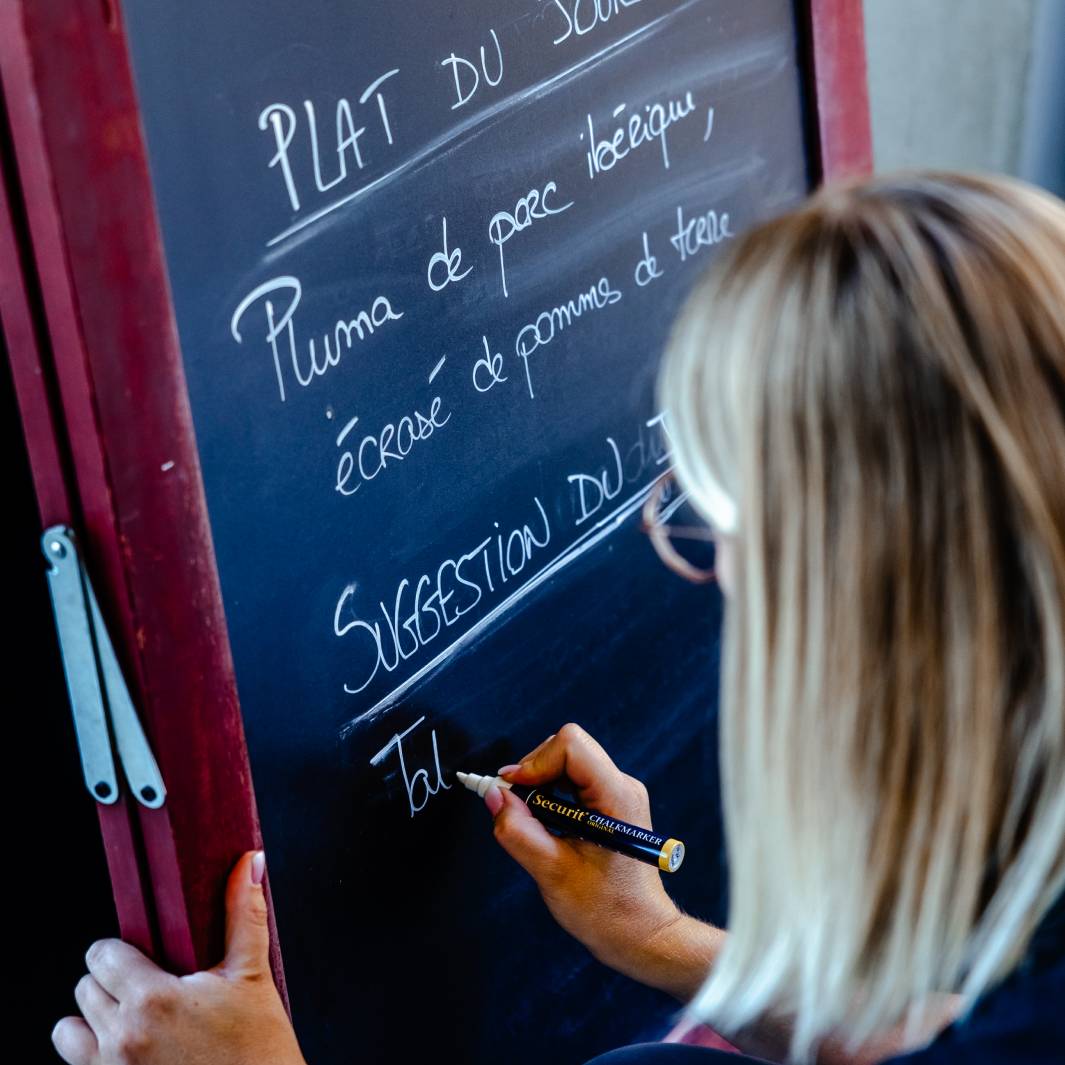 PLAT DU JOUR
Pluma de porc ibérique,
écrasé de pommes de terre
SUGGESTION DU
Tal
Securit® CHALKMARKER
ORIGINAL